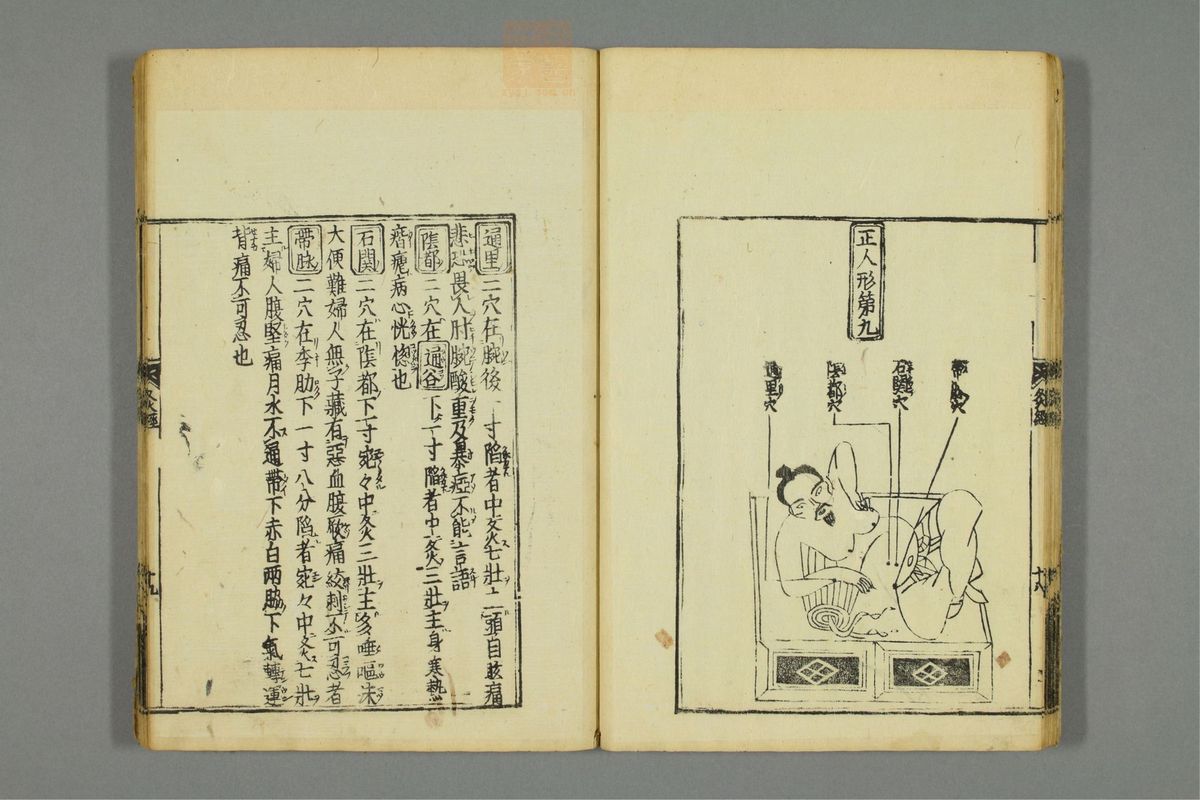 正人形第九
帶脉穴
石関穴
陰都穴
通里穴
灸經
十八
通里 二穴在腕後一寸陷者中灸七壯主頭目眩痛
悲恐畏人肘腕酸重及暴瘂不能言語
陰都 二穴在通谷下一寸陷者中灸三壯主身寒熱
瘧病心恍惚也
石関 二穴在陰都下一寸宛々中灸三壯主多唾嘔沫
大便難婦人無子藏有惡血腹厥痛絞刺不可忍者
帶脉 二穴在季肋下一寸八分陷者宛々中灸七壯
主婦人腹堅痛月水不通帶下赤白兩脇下氣轉運
背痛不可忍也
灸經
十九